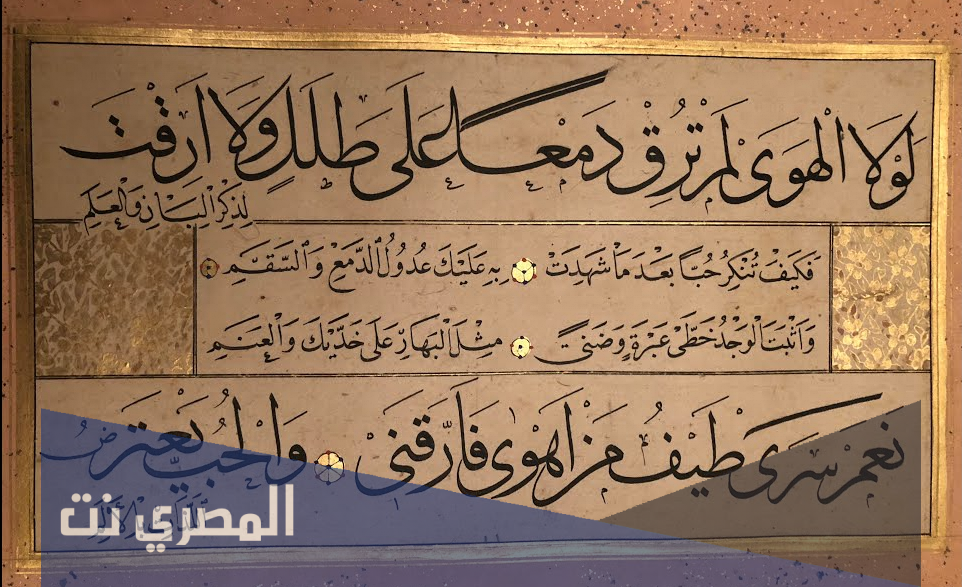 لَوْلَا الْهَوَى لَمْ تُرِقْ دَمْعًا عَلَى طَلَلٍ وَلَا اَرِقْتَ
لِذِكْرِ الْبَانِ وَالْعَلَمِ
فَكَيْفَ تُنْكِرُ حُبًّا بَعْدَ مَا شَهِدَتْ بِهِ عَلَيْكَ عُدُولُ الدَّمْعِ وَالسَّقَمِ
وَاَثْبَتَ الْوَجْدُ خَطَّىْ عَبْرَةٍ وَضَنًى مِثْلَ الْبَهَارِ عَلَى خَدَّيْكَ وَالْعَنَمِ
نَعَمْ سَرَى طَيْفُ مَنْ اَهْوَى فَاَرَّقَنِى وَالْحُبُّ يَعْتَرِضُ
اللَّذَّاتِ بِالْاَلَمِ
المصري نت